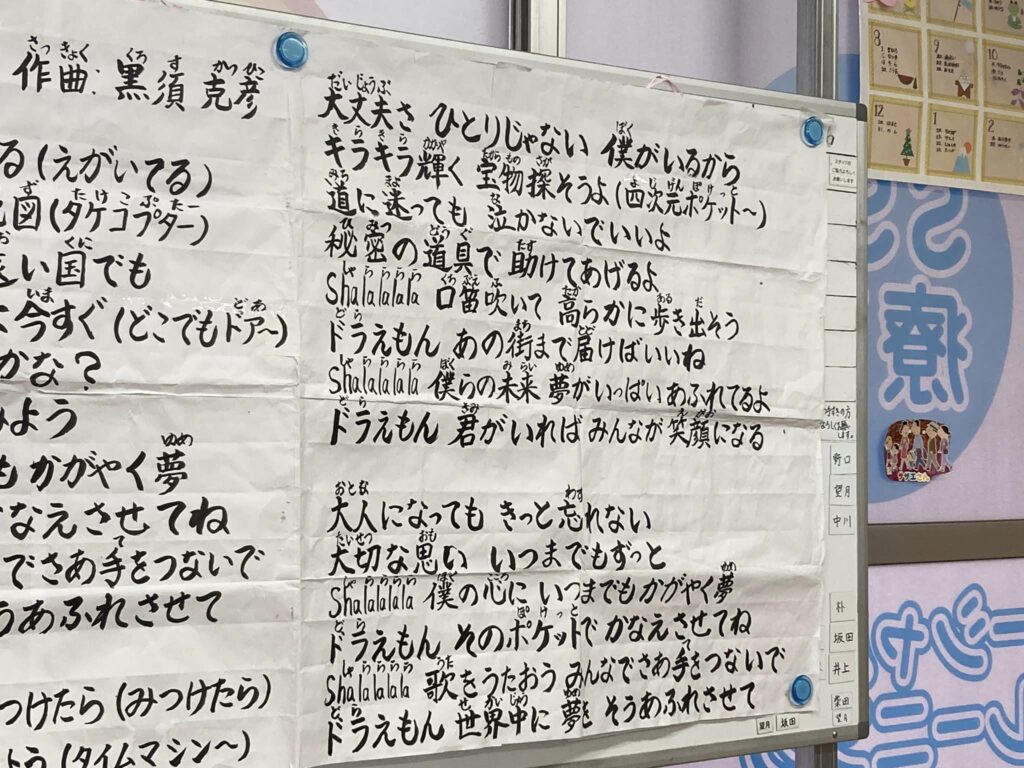 さっきょく くろ す かつ ひこ
作曲:黒須 克彦
る(えがいてる)
図(タケコプター)
い国でも
今すぐ(どこでもドア〜)
かな?
みよう
もかがやく夢
なえさせてね
でさあ手をつないで
うあふれさせて
つけたら(みつけたら)
トう(タイムマシン〜)
大丈夫さ ひとりじゃない 僕がいるから
キラキラ輝く 宝物探そうよ(四次元ポケット〜)
道に迷っても 泣かないでいいよ
秘密の道具で 助けてあげるよ
Shalalalala 口笛吹いて 高らかに歩き出そう
ドラえもん あの街まで届けばいいね
Shalalalala 僕らの未来 夢がいっぱいあふれてるよ
ドラえもん 君がいれば みんなが笑顔になる
大人になっても きっと忘れない
大切な思い いつまでもずっと
Shalalalala 僕の心に いつまでもかがやく夢
ドラえもん そのポケットで かなえさせてね
Shalalalala 歌をうたおう みんなでさあ手をつないで
ドラえもん 世界中に 夢を そうあふれさせて
野口
望月
中川
朴
坂田
井上
柴田
望月
望月 坂田
8
9
10
12
1
2
サザエさん